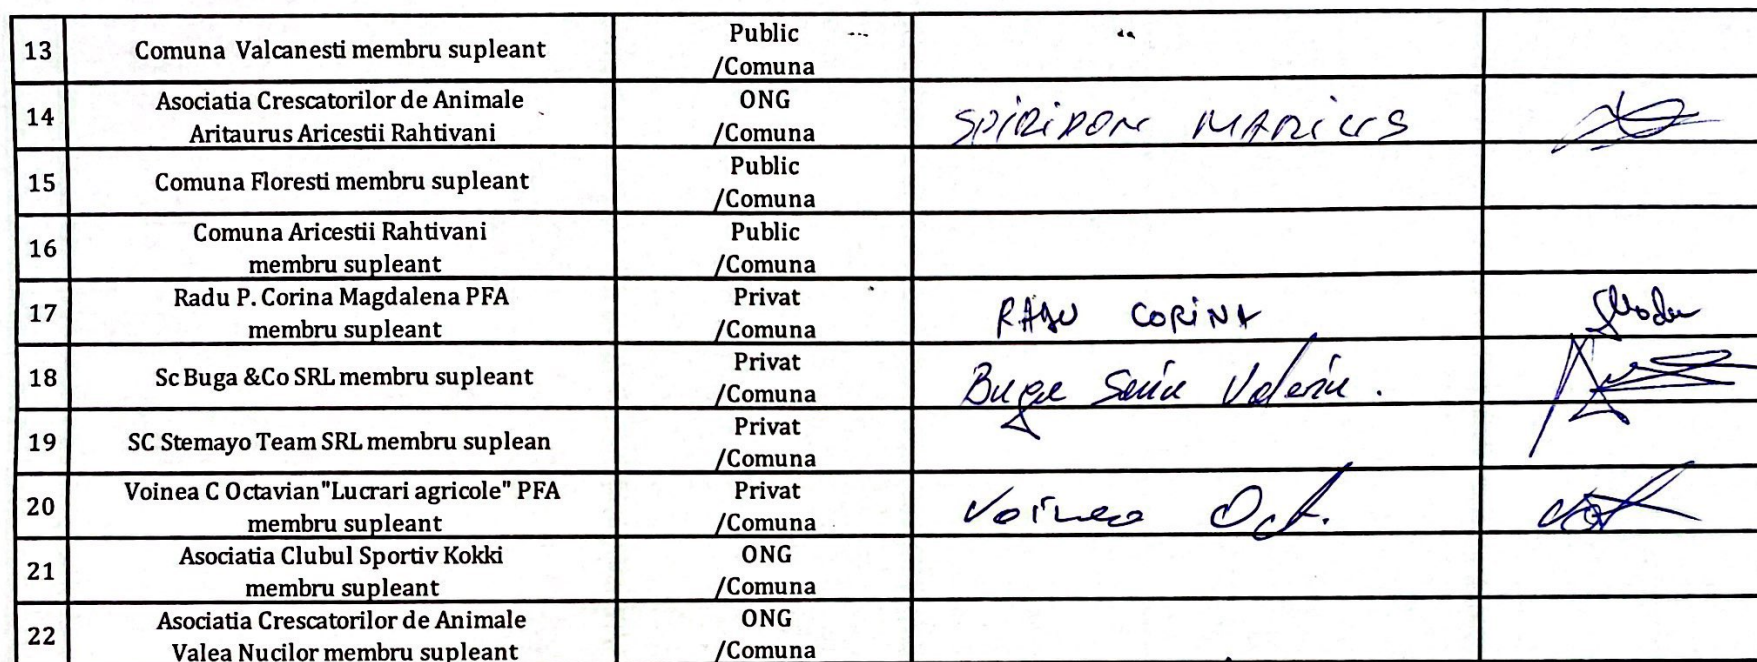 13 Comuna Valcanesti membru supleant Public
/Comuna
14 Asociatia Crescatorilor de Animale
Aritaurus Aricestii Rahtivani ONG
/Comuna SPIRIDON MARIUS
15 Comuna Floresti membru supleant Public
/Comuna
16 Comuna Aricestii Rahtivani
membru supleant Public
/Comuna
17 Radu P. Corina Magdalena PFA
membru supleant Privat
/Comuna RADU CORINA
18 Sc Buga &Co SRL membru supleant Privat
/Comuna Buga Valeriu.
19 SC Stemayo Team SRL membru suplean Privat
/Comuna
20 Voinea C Octavian"Lucrari agricole" PFA
membru supleant Privat
/Comuna Voinea Oct.
21 Asociatia Clubul Sportiv Kokki
membru supleant ONG
/Comuna
22 Asociatia Crescatorilor de Animale
Valea Nucilor membru supleant ONG
/Comuna